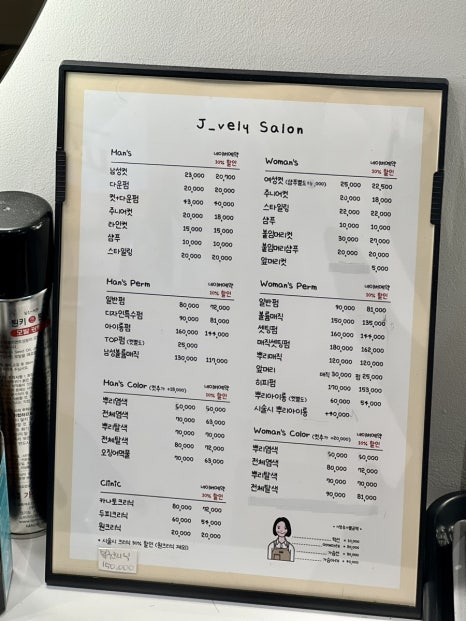 J_vely Salon
Man's 네이버예약
10% 할인
남성컷 23,000 20,700
다운펌 20,000 20,000
컷+다운펌 43,000 40,000
주니어컷 20,000 18,000
라인컷 15,000 15,000
샴푸 10,000 10,000
스타일링 20,000 20,000
Woman's 네이버예약
10% 할인
여성컷 25,000 22,500
주니어컷 20,000 18,000
스타일링 22,000 22,000
샴푸 10,000 10,000
붙임머리컷 30,000 27,000
붙임머리샴푸 20,000 20,000
앞머리컷 5,000
Man's Perm 네이버예약
10% 할인
일반펌 80,000 72,000
디자인특수펌 90,000 81,000
아이롱펌 160,000 144,000
TOP펌 (컷별도) 25,000
남성볼륨매직 130,000 117,000
Woman's Perm 네이버예약
10% 할인
일반펌 90,000 81,000
볼륨매직 150,000 135,000
셋팅펌 160,000 144,000
매직셋팅펌 180,000 162,000
뿌리매직 120,000 120,000
앞머리 매직 30,000 펌 25,000
히피펌 170,000 153,000
뿌리아이롱 (컷별도) 60,000 54,000
시술시 뿌리아이롱 +40,000
Man's Color (컷추가 +18,000) 네이버예약
10% 할인
뿌리염색 50,000 50,000
전체염색 70,000 63,000
뿌리탈색 70,000 70,000
전체탈색 80,000 72,000
오징어먹물 70,000 63,000
Woman's Color (컷추가 +20,000) 네이버예약
10% 할인
뿌리염색 50,000 50,000
전체염색 80,000 72,000
뿌리탈색 70,000 70,000
전체탈색 90,000 81,000
Clinic 네이버예약
10% 할인
카나토크리닉 80,000 72,000
두피크리닉 60,000 54,000
원크리닉 20,000 20,000
* 시술시 크리닉 30% 할인 (원크리닉 제외)
150,000